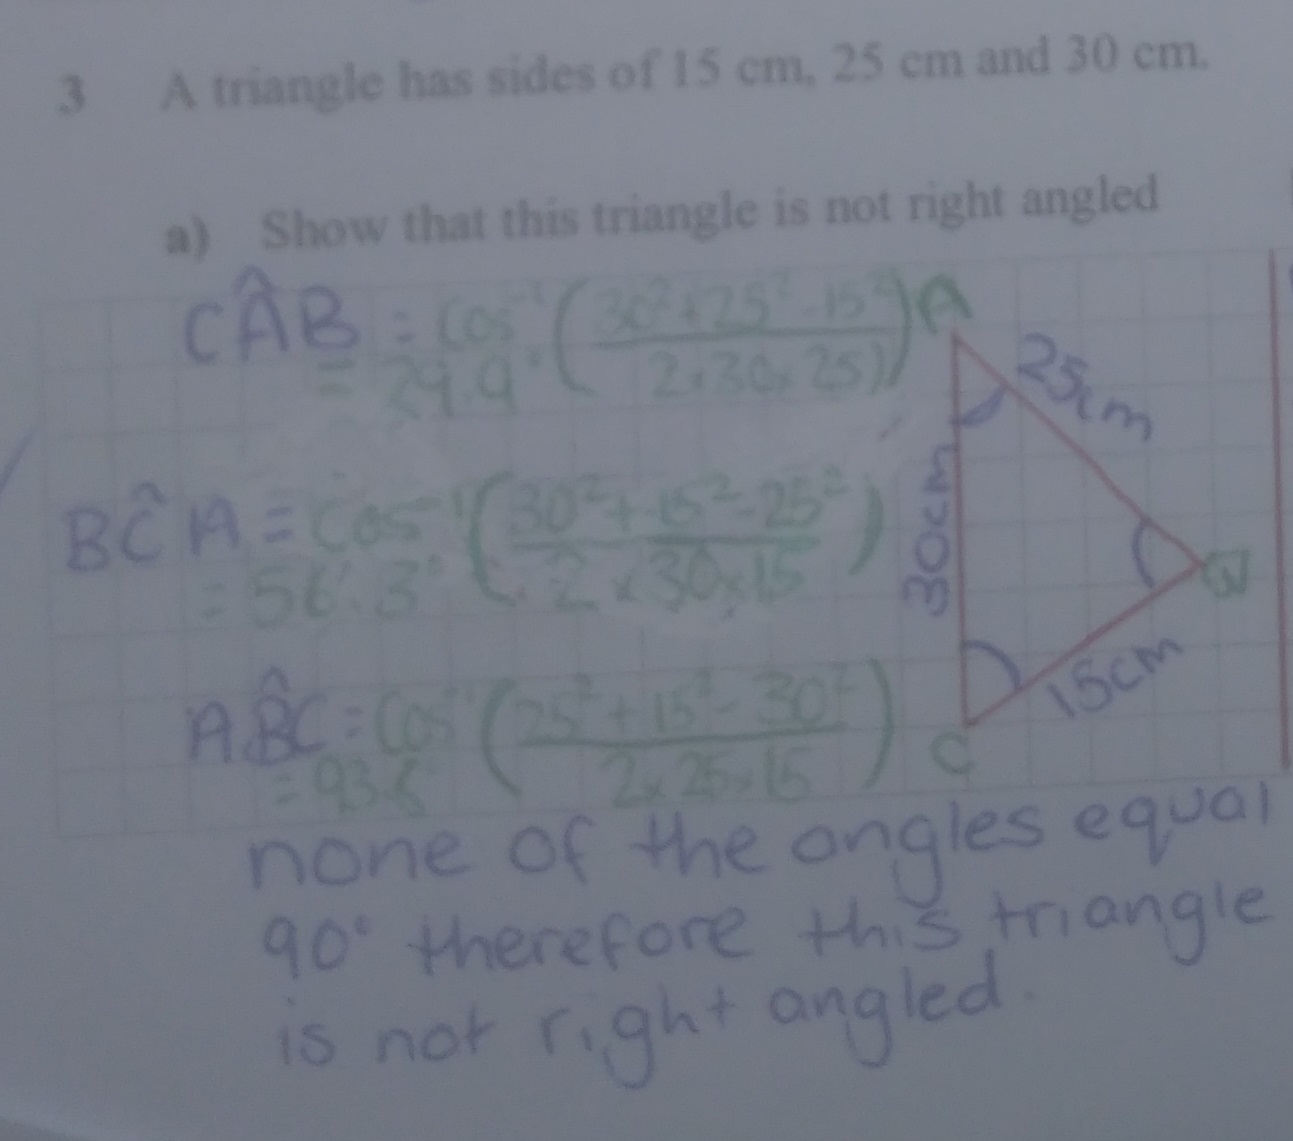 3 A triangle has sides of 15 cm, 25 cm and 30 cm.
a) Show that this triangle is not right angled
CÂB = Cos⁻¹ (30² + 25² - 15² / 2 x 30 x 25)
= 29.9°
A
25cm
BĈA = Cos⁻¹ (30² + 15² - 25² / 2 x 30 x 15)
= 56.3°
30cm
15cm
AB̂C = Cos⁻¹ (25² + 15² - 30² / 2 x 25 x 15)
C
none of the angles equal
90° therefore this triangle
is not right angled.